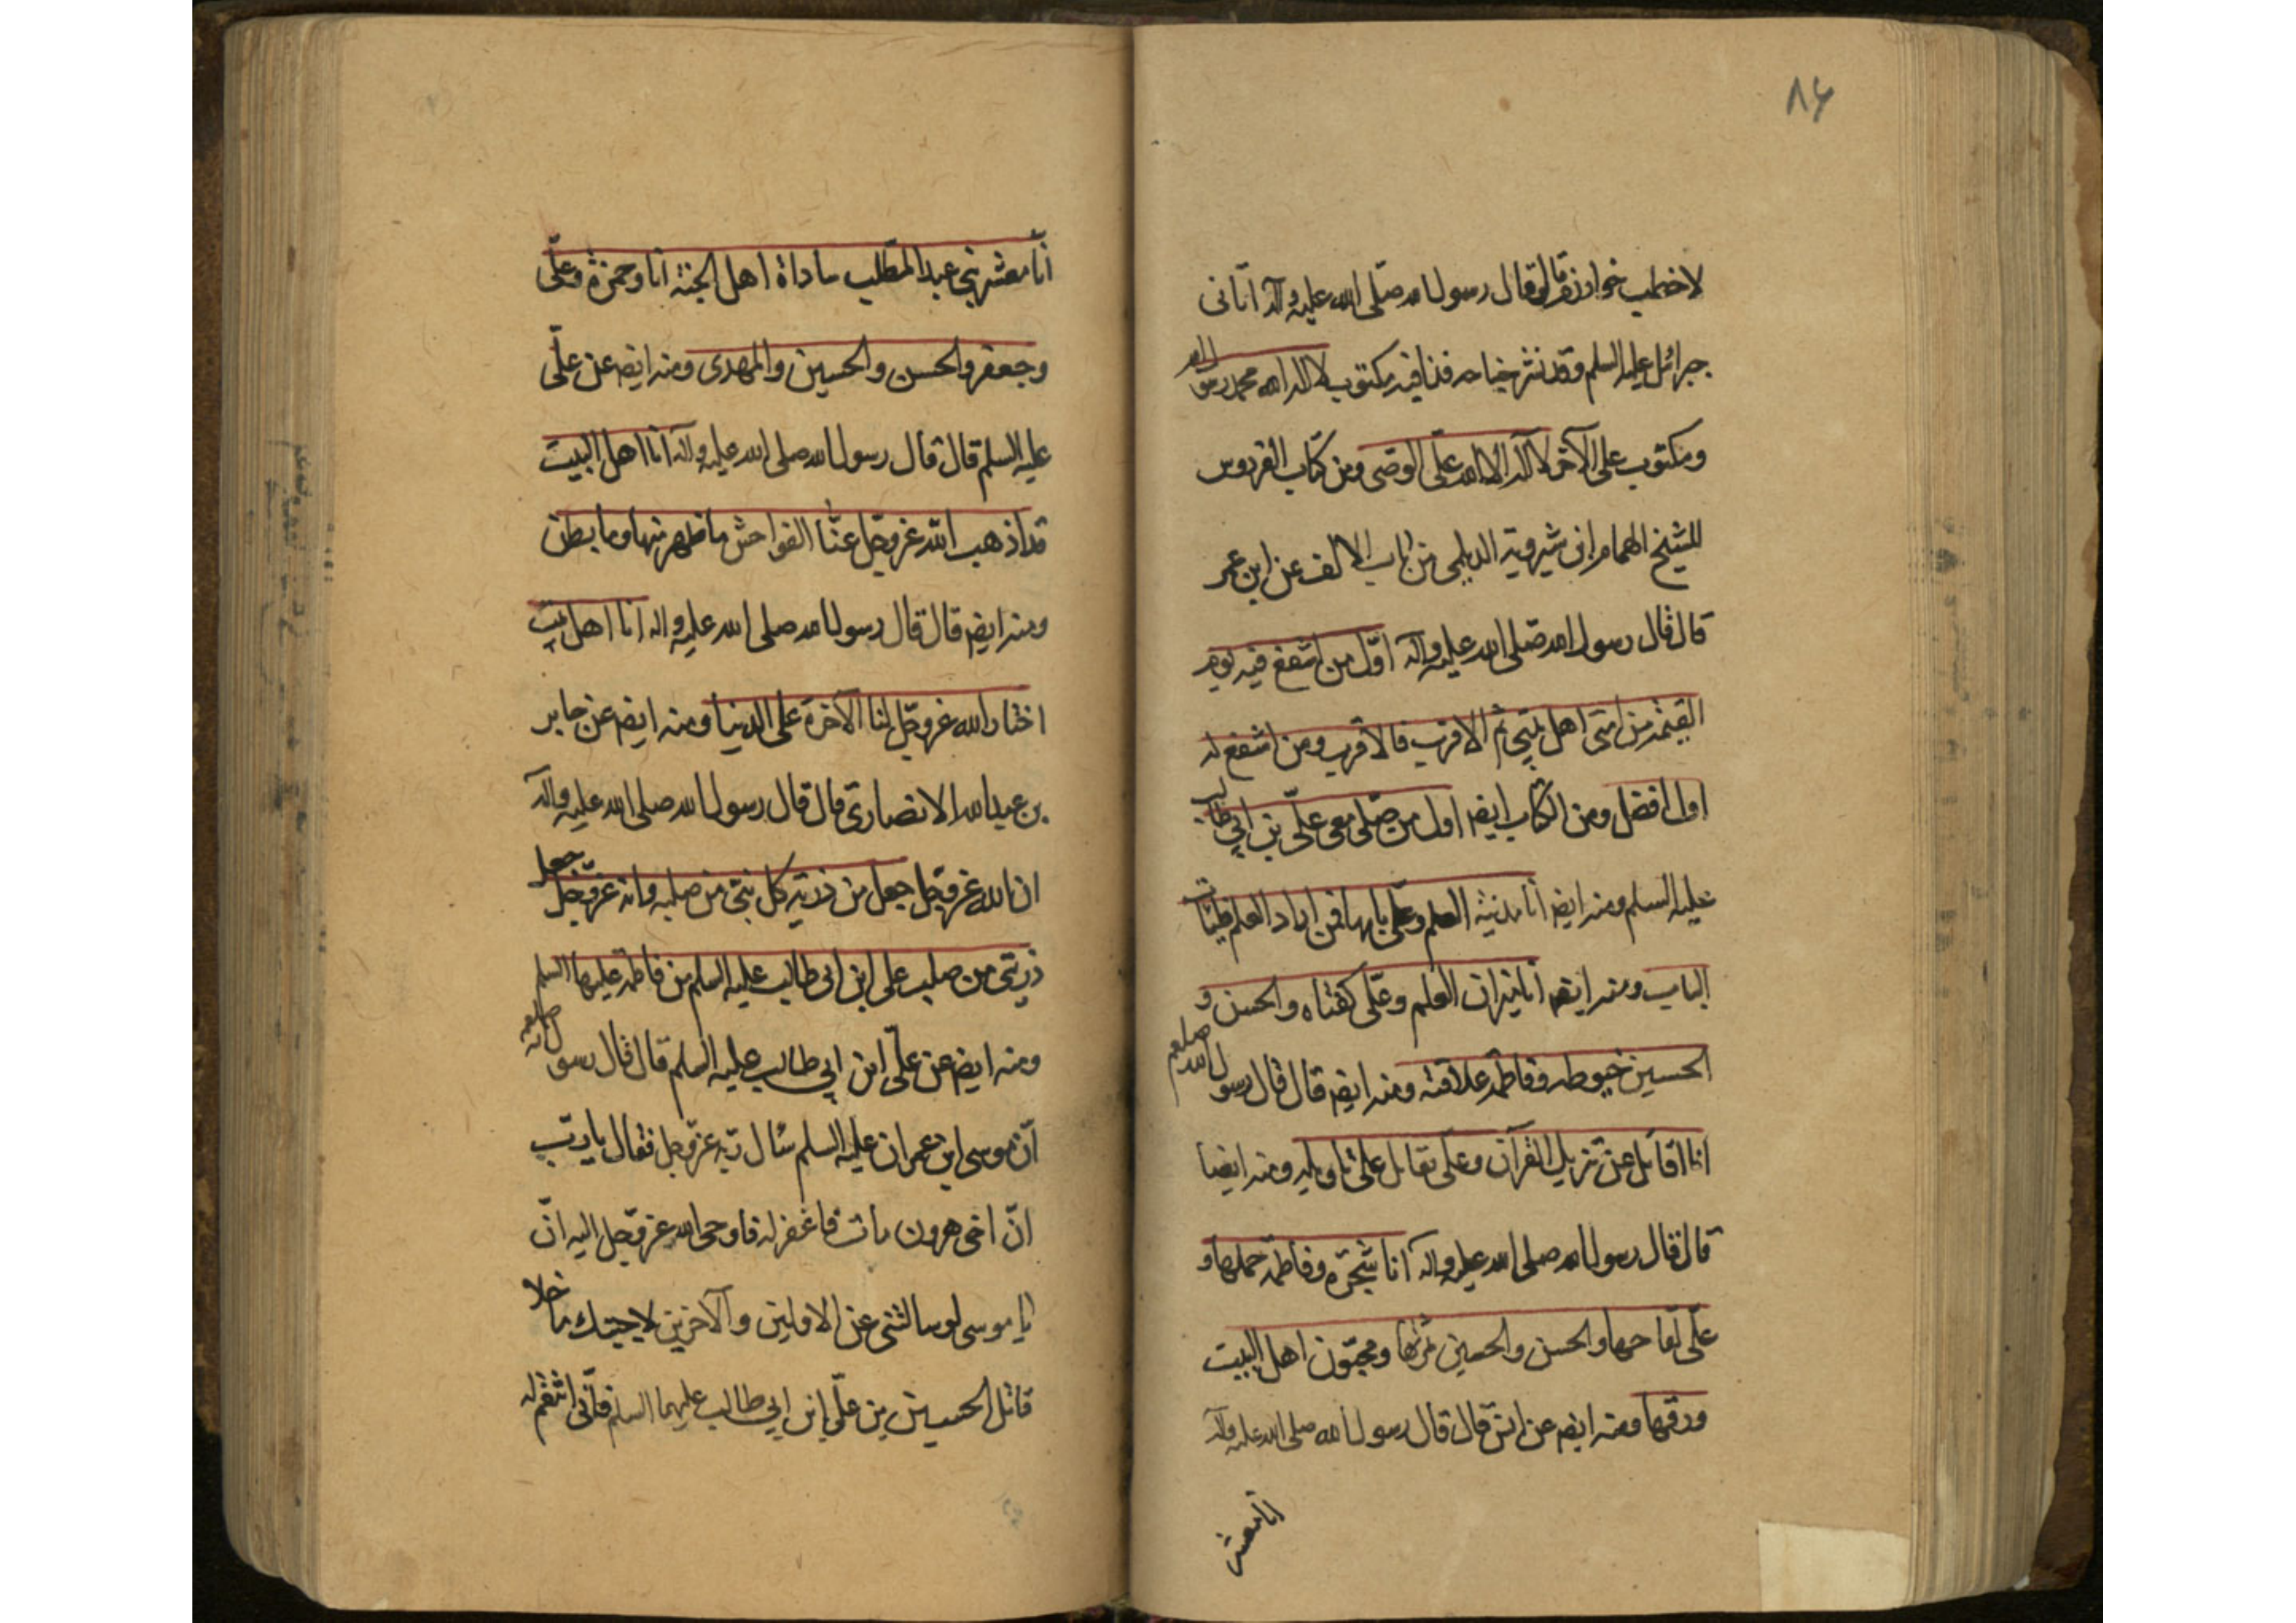 ٨۶
لاخطب خوارزم قال وقال رسول الله صلّى الله عليه وآله اتانى
جبرائل عليه السلم وقد نشر جناحه فذا فيه مكتوب لا اله الا الله محمد رسول الله
ومكتوب على الآخر لا اله الا الله علىّ الوصى ومن كتاب الفردوس
للشيخ الهمام ابن شيرويه الديلمى من باب الالف عن ابن عمر
قال قال رسول الله صلّى الله عليه وآله اوّل من اشفع فيه يوم
القيٰمة من امتى اهل بيتى ثم الاقرب فالاقرب ومن اشفع له
اول افضل ومن الكتاب ايضا اول من صلّى معى علّى بن ابي طالب
عليه السلم ومنه ايضا انا مدينة العلم وعلّى بابها فمن اراد العلم فليات
الباب ومنه ايضا انا ميزان العلم وعلّى كفتاه والحسن و
الحسين خيوطه وفاطمة علاقته ومنه ايضا قال قال رسول الله صلعم
انا اقاتل عن تنزيل القرآن وعلى يقاتل على تاويله ومنه ايضا
قال قال رسول الله صلى الله عليه واله انا شجرة وفاطمة حملها و
علّى لقاحها والحسن والحسين ثمرتها ومحبّون اهل البيت
ورقها ومنه ايضا عن انس قال قال رسول الله صلى الله عليه وآله
انا معشر
انّا معشر بنى عبد المطّلب ساداة اهل الجنة انا وحمزة وعلّى
وجعفر والحسن والحسين والمهدى ومنه ايضا عن علّى
عليه السلم قال قال رسول الله صلى الله عليه وآله انا اهل البيت
قد اذهب الله عز وجّل عنّا الفواحش ما ظهر منها وما بطن
ومنه ايضا قال قال رسول الله صلى الله عليه واله انا اهل بيت
اختار الله عز وجّل لنا الآخرة على الدنيا ومنه ايضا عن جابر
بن عبد الله الانصارى قال قال رسول الله صلى الله عليه وآله
ان الله عز وجّل جعل من ذرية كل نبىّ من صلبه وانه عز وجّل جعل
ذريتى من صلب على ابن ابى طالب عليه السلم من فاطمة عليها السلم
ومنه ايضا عن علّى ابن ابي طالب عليه السلم قال قال رسول الله صلعم
انّ موسى ابن عمران عليه السلم سئال ربه عز وجل فقال يا ربّ
انّ اخى هرون مات فاغفر له فاوحى الله عز وجل اليه انّ
يا موسى لو سالتنى عن الاولين والآخرين لاجبتك ما خلا
قاتل الحسين بن علّى ابن ابي طالب عليهما السلم فانّى انتقم له